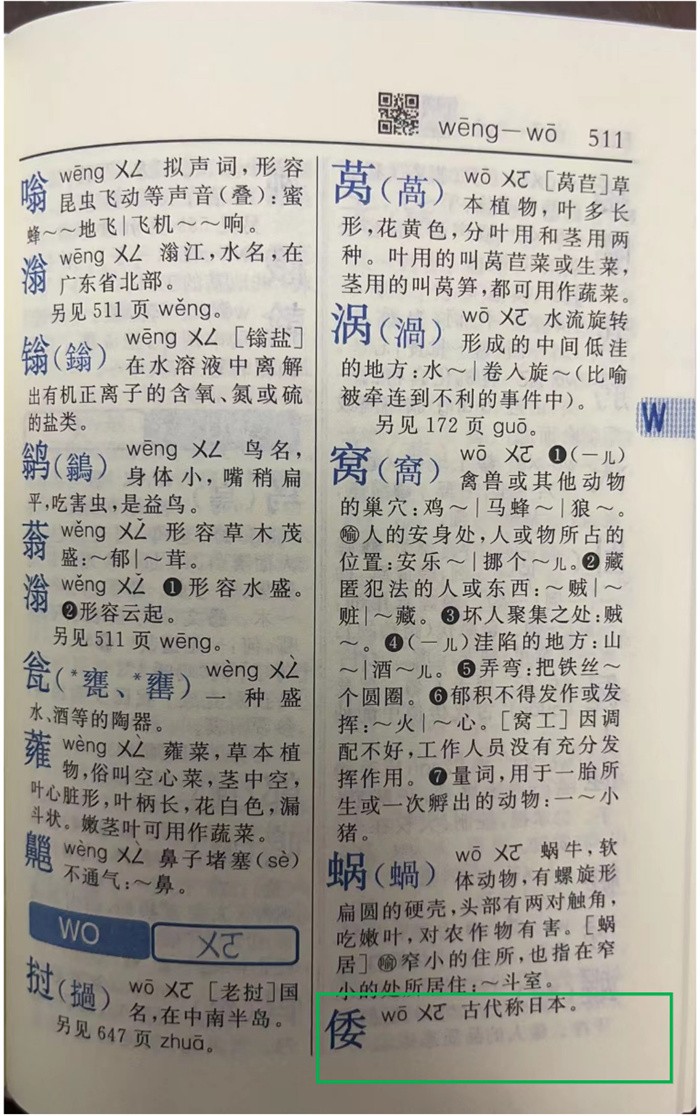 wēng—wō 511
嗡 wēng ㄨㄥ 拟声词，形容
昆虫飞动等声音(叠)：蜜
蜂～～地飞|飞机～～响。
滃 wēng ㄨㄥ 滃江，水名，在
广东省北部。
另见 511 页 wěng。
镃(鎓) wēng ㄨㄥ [鎓盐]
在水溶液中离解
出有机正离子的含氧、氮或硫
的盐类。
鹟(鶲) wēng ㄨㄥ 鸟名，
身体小，嘴稍扁
平，吃害虫，是益鸟。
蓊 wěng ㄨㄥˇ 形容草木茂
盛：～郁|～茸。
滃 wěng ㄨㄥˇ ❶形容水盛。
❷形容云起。
另见 511 页 wēng。
瓮(*甕、*罋) wèng ㄨㄥˋ
一种盛
水、酒等的陶器。
蕹 wèng ㄨㄥˋ 蕹菜，草本植
物，俗叫空心菜，茎中空，
叶心脏形，叶柄长，花白色，漏
斗状。嫩茎叶可用作蔬菜。
齆 wèng ㄨㄥˋ 鼻子堵塞(sè)
不通气：～鼻。
WO ㄨㄛ
挝(撾) wō ㄨㄛ [老挝]国
名，在中南半岛。
另见 647 页 zhuā。
莴(萵) wō ㄨㄛ [莴苣]草
本植物，叶多长
形，花黄色，分叶用和茎用两
种。叶用的叫莴苣菜或生菜，
茎用的叫莴笋，都可用作蔬菜。
涡(渦) wō ㄨㄛ 水流旋转
形成的中间低洼
的地方：水～|卷入旋～(比喻
被牵连到不利的事件中)。
另见 172 页 guō。
窝(窩) wō ㄨㄛ ❶(－儿)
禽兽或其他动物
的巢穴：鸡～|马蜂～|狼～。
喻人的安身处，人或物所占的
位置：安乐～|挪个～儿。❷藏
匿犯法的人或东西：～贼|～
赃|～藏。❸坏人聚集之处：贼
～。❹(－儿)洼陷的地方：山
～|酒～儿。❺弄弯：把铁丝～
个圆圈。❻郁积不得发作或发
挥：～火|～心。[窝工]因调
配不好，工作人员没有充分发
挥作用。❼量词，用于一胎所
生或一次孵出的动物：一～小
猪。
蜗(蝸) wō ㄨㄛ 蜗牛，软
体动物，有螺旋形
扁圆的硬壳，头部有两对触角，
吃嫩叶，对农作物有害。[蜗
居]喻窄小的住所，也指在窄
小的处所居住：～斗室。
倭 wō ㄨㄛ 古代称日本。
W